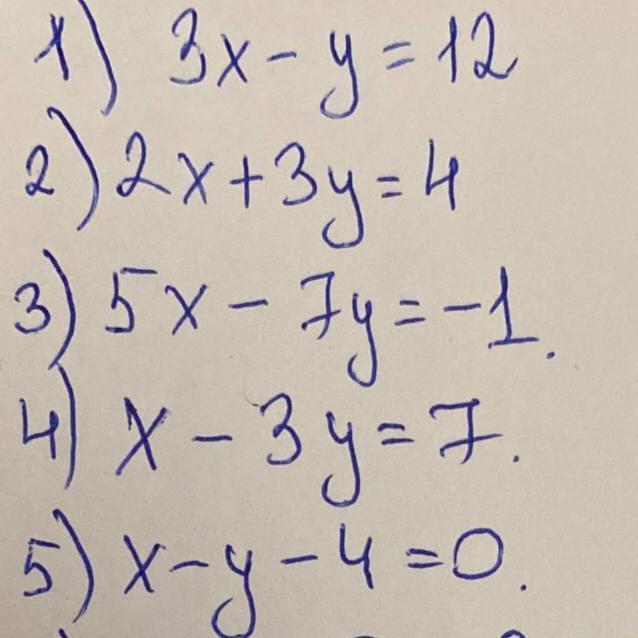 1) 3x - y = 12
2) 2x + 3y = 4
3) 5x - 7y = -1.
4) x - 3y = 7.
5) x - y - 4 = 0.